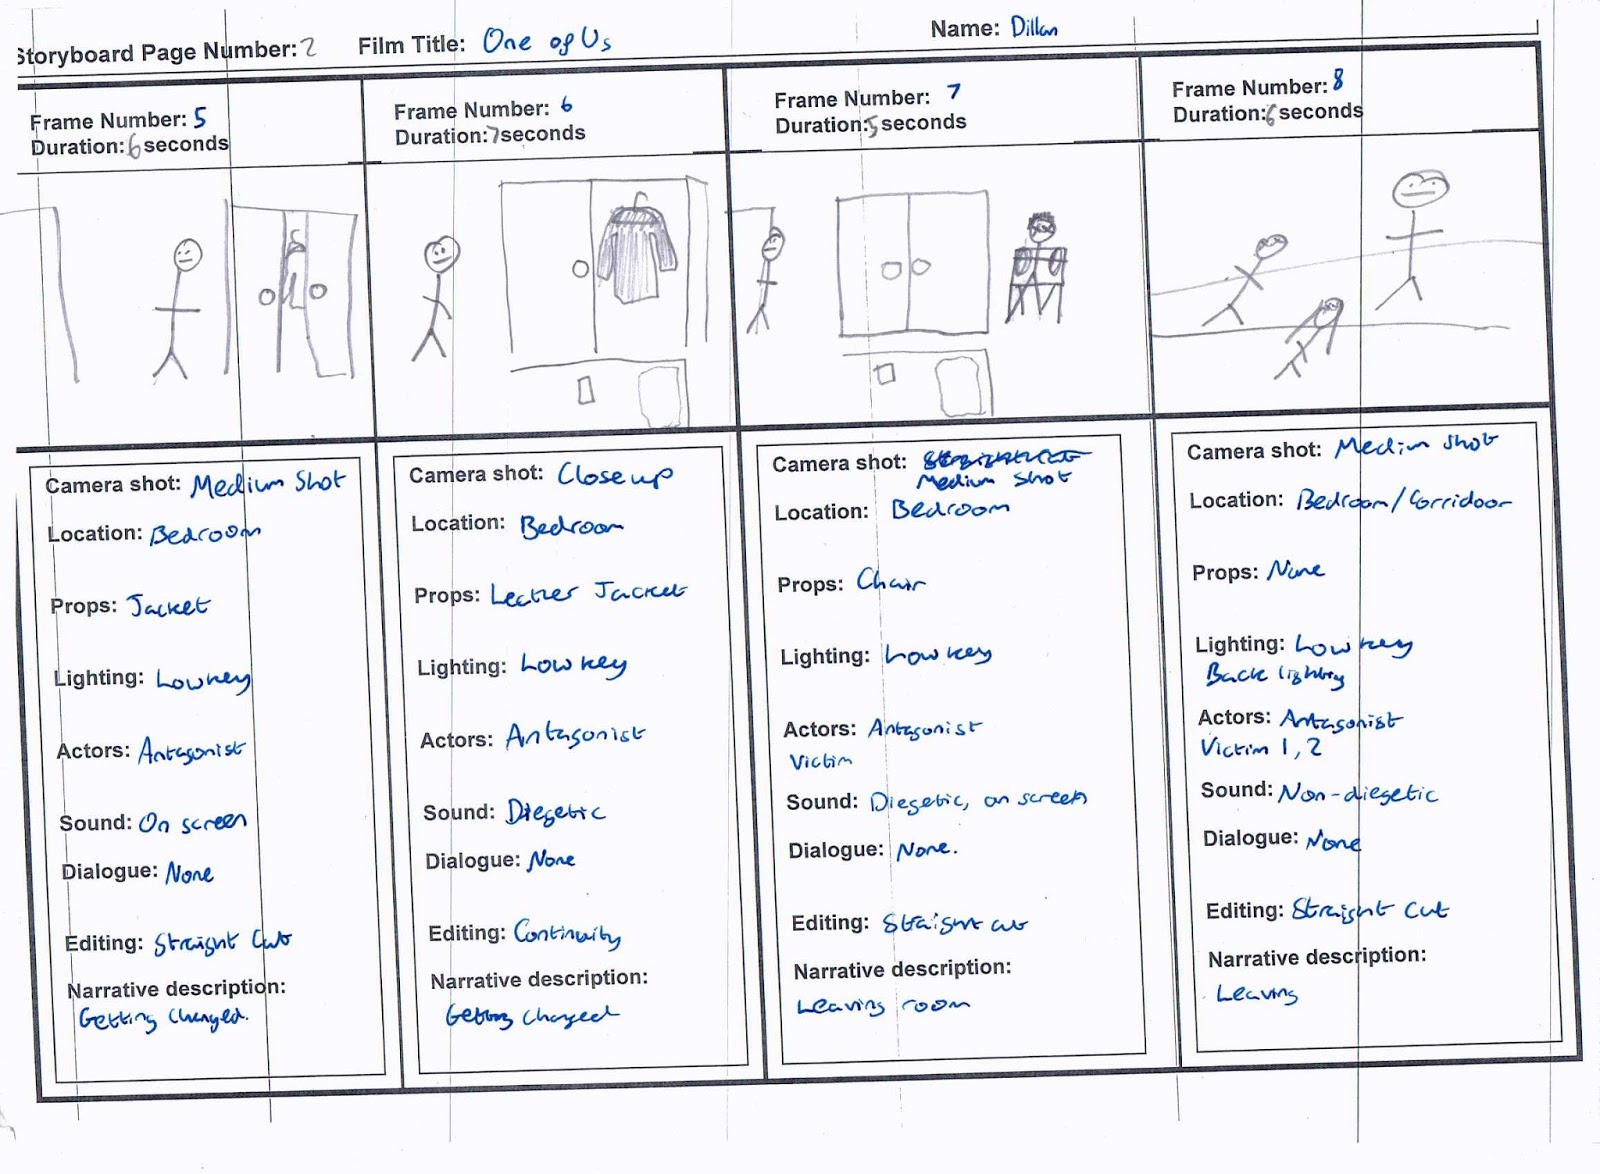 Storyboard Page Number: 2 Film Title: One of Us Name: Dillan
Frame Number: 5
Duration: 6 seconds
Camera shot: Medium Shot
Location: Bedroom
Props: Jacket
Lighting: Lowkey
Actors: Antagonist
Sound: On screen
Dialogue: None
Editing: Straight Cut
Narrative description:
Getting Changed.
Frame Number: 6
Duration: 7 seconds
Camera shot: Close up
Location: Bedroom
Props: Leather Jacket
Lighting: Low key
Actors: Antagonist
Sound: Diegetic
Dialogue: None
Editing: Continuity
Narrative description:
Getting changed
Frame Number: 7
Duration: 5 seconds
Camera shot:
Medium Shot
Location: Bedroom
Props: Chair
Lighting: Low key
Actors: Antagonist
Victim
Sound: Diegetic, on screen
Dialogue: None.
Editing: Straight cut
Narrative description:
Leaving room
Frame Number: 8
Duration: 6 seconds
Camera shot: Medium shot
Location: Bedroom/Corridoor
Props: None
Lighting: Low key
Back lighting
Actors: Antagonist
Victim 1, 2
Sound: Non-diegetic
Dialogue: None
Editing: Straight Cut
Narrative description:
Leaving